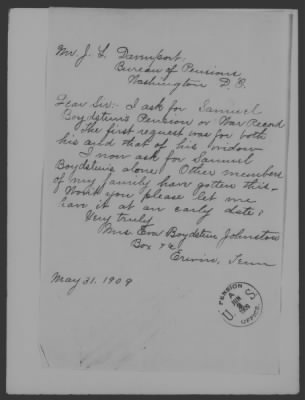 Mr. J. L. Davenport:
Bureau of Pensions
Washington D. C.
Dear Sir:- I ask for Samuel
Boydstein's Pension or War Record
The first request was for both
his and that of his widow
I now ask for Samuel
Boydsteins alone. Other members
of my family have gotten this-
Wont you please let me
have it at an early date?
Very truly
Mrs. Eva Boydstein Johnston
Box
Erwin, Tenn
May 31. 1909
U. S. PENSION OFFICE.
JUN